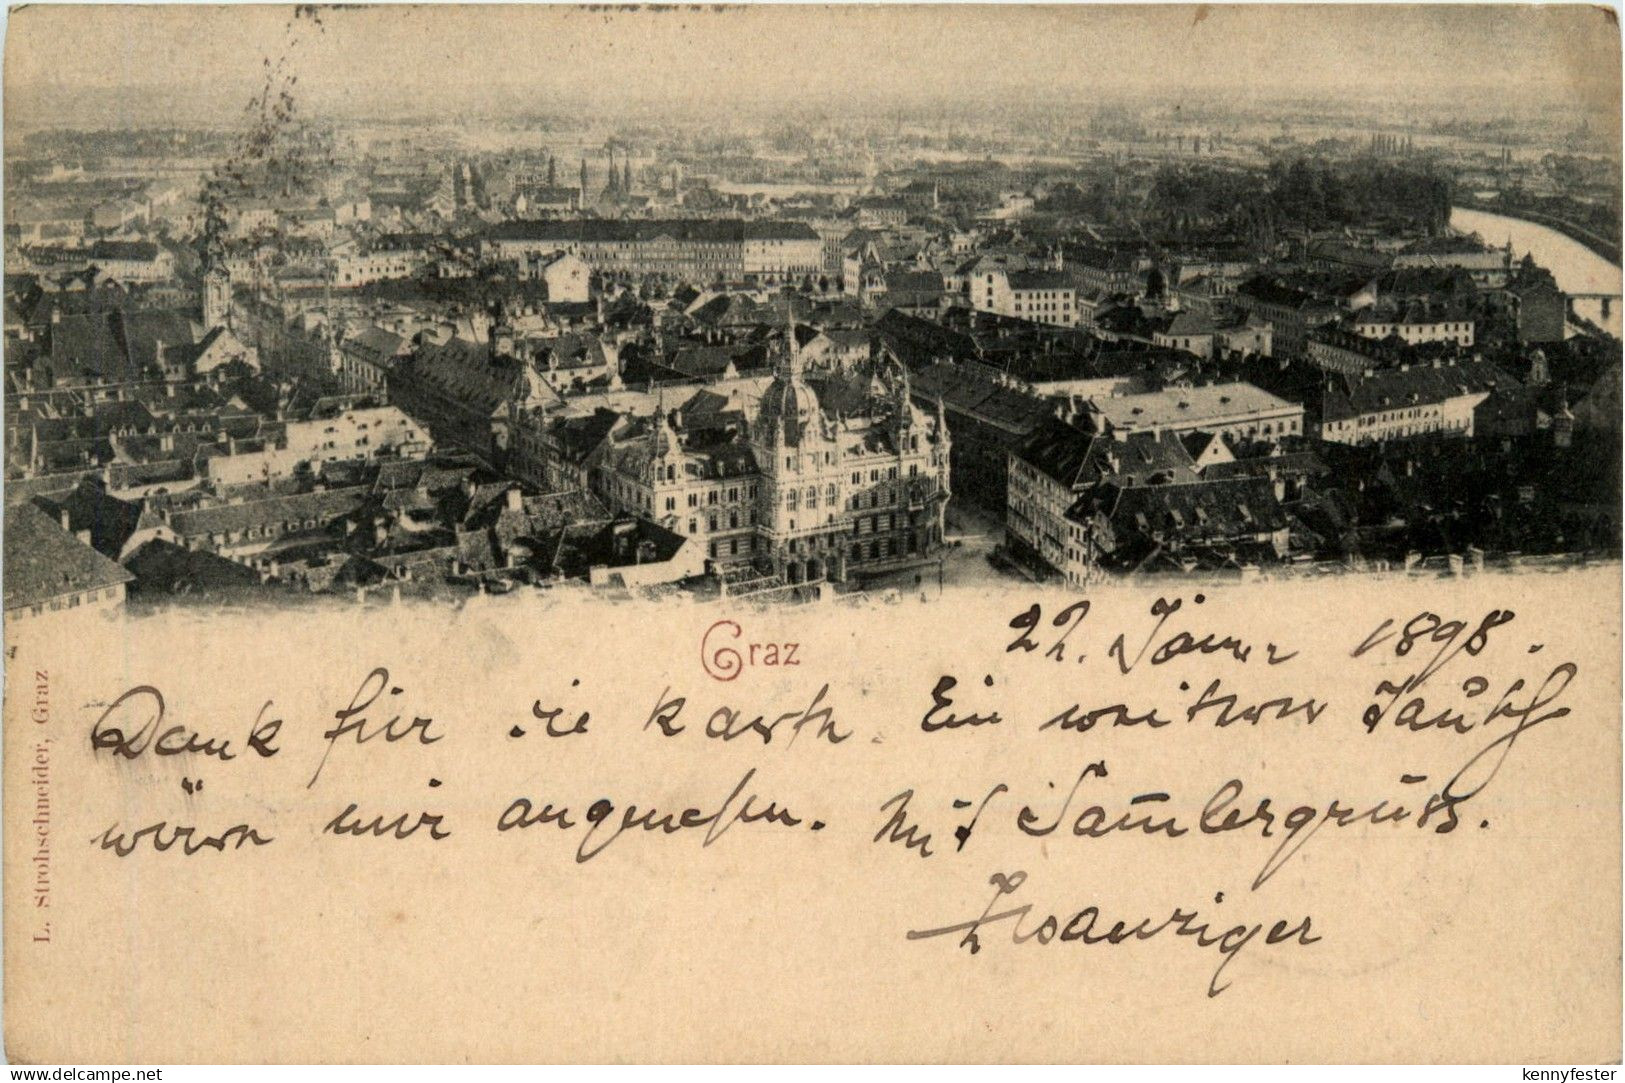 Graz
22. Jänner 1898.
Dank für die Karte. Ein weiterer Tausch
wäre mir angenehm. Mit Sam̅lergruss.
Zwanziger
L. Strohschneider, Graz
www.delcampe.net
kennyfester